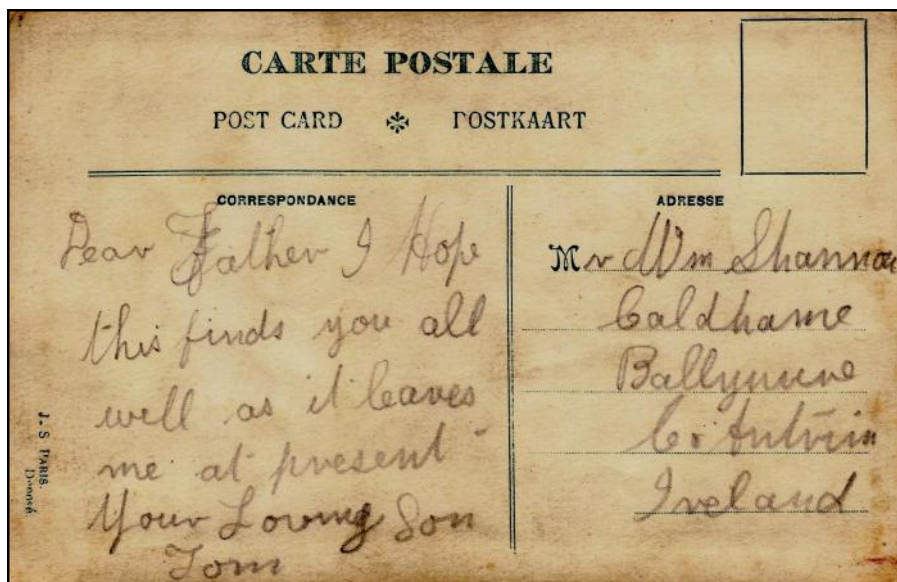 CARTE POSTALE
POST CARD ❇ POSTKAART
CORRESPONDANCE
Dear Father I Hope
this finds you all
well as it leaves
me at present -
Your Loving Son
Tom
ADRESSE
Mr Wm Shannon
Caldhame
Ballynure
Co. Antrim
Ireland
J-S PARIS.